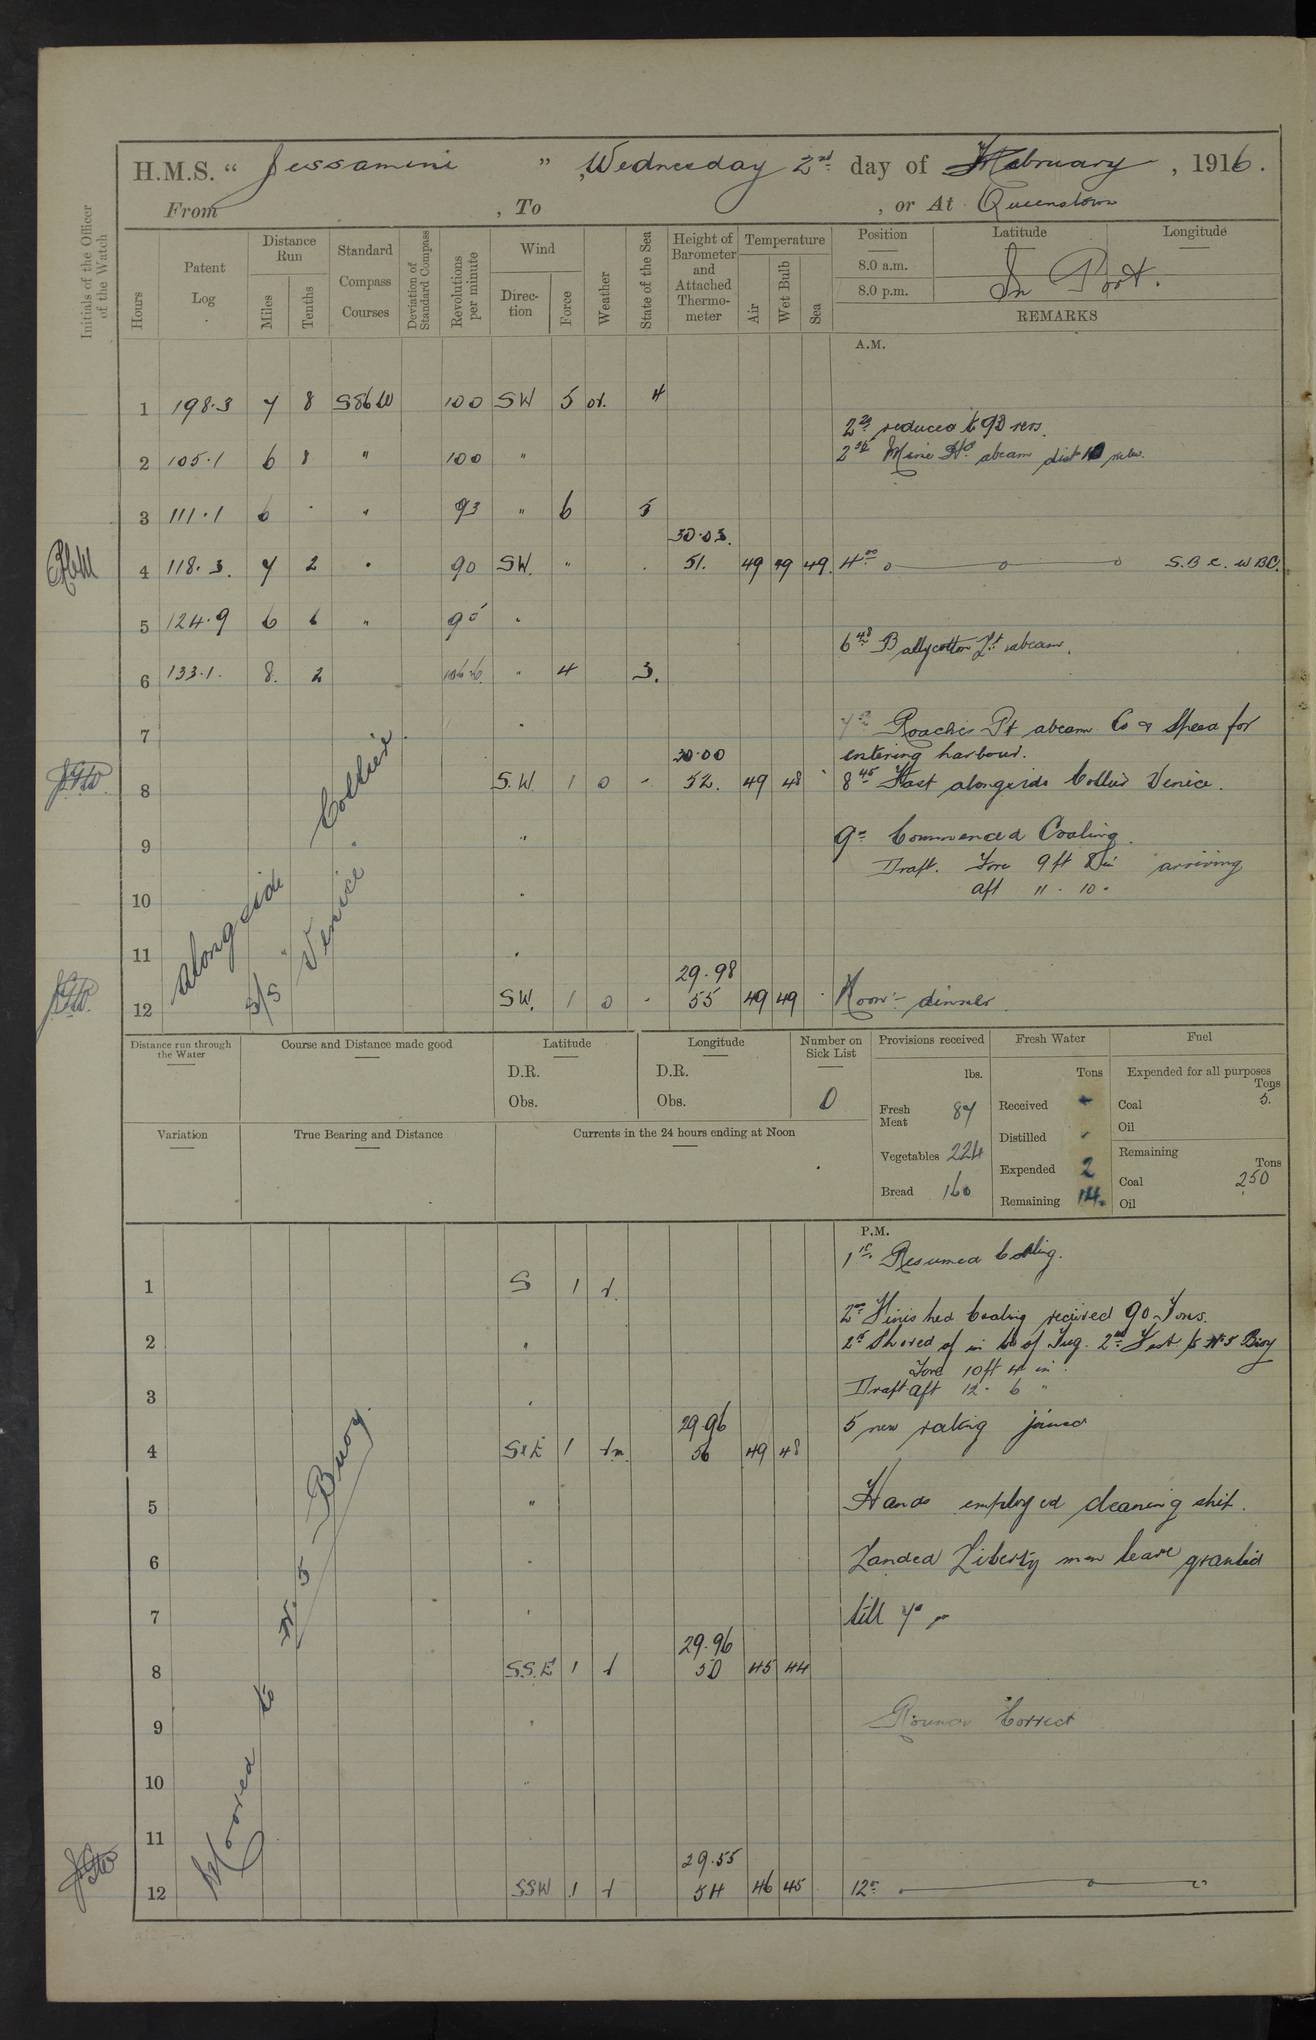 H.M.S. " Jessamine " , Wednesday 2nd day of February , 1916.
From , To , or At Queenstown
Initials of the Officer of the Watch
Hours
Patent Log
Distance Run
Miles
Tenths
Standard Compass Courses
Deviation of Standard Compass
Revolutions per minute
Wind
Direction
Force
Weather
State of the Sea
Height of Barometer and Attached Thermometer
Temperature
Air
Wet Bulb
Sea
Position Latitude Longitude
8.0 a.m.
8.0 p.m.
In Port.
REMARKS
A.M.
1 198.3 7 8 S86W 100 SW 5 or. 4
reduced to 93 revs.
2 105.1 6 8 " 100 "
Mine Hd abeam dist
3 111.1 6 · " 93 " 6 5
30.03.
4 118.3. 7 2 " 90 SW. " 51. 49 49 49. 4 00 S.B.C. WBC.
5 124.9 6 6 " 95 "
6 48 Ballycotton Lt abeam.
6 133.1. 8. 2 " 4 3.
7 " Roaches Pt abeam Co & Speed for
30.00 entering harbour.
8 S.W. 1 o - 52. 49 48 8 45 Fast alongside Collier Venice.
9 " 9 Commenced Coaling.
Draft. Fore 9 ft 8 in arriving
10 " aft 11 . 10 "
11 "
29.98
12 SW. 1 o - 55 49 49 Noon - dinner
alongside Collier
S/S "Venice"
Distance run through the Water
Course and Distance made good
Latitude
D.R.
Obs.
Longitude
D.R.
Obs.
Number on Sick List
0
Provisions received
lbs.
Fresh Meat 87
Vegetables 224
Bread 160
Fresh Water
Tons
Received -
Distilled -
Expended 2
Remaining 14.
Fuel
Expended for all purposes
Tons
Coal 5.
Oil
Remaining
Tons
Coal 250
Oil
Variation
True Bearing and Distance
Currents in the 24 hours ending at Noon
P.M.
Resumed Coaling.
1 S 1 r.
Finished Coaling received 90 Tons.
2 " Shoved of in Co of Tug. Fast to No 5 Buoy
Fore 10 ft 4 in
3 " Draft aft 12 . 6 "
29.96 5 new rating joined
4 SxE 1 rm 56 49 48
5 " Hands employed cleaning ship.
6 " Landed Liberty men leave granted
7 " till 7
29.96
8 S.S.E 1 r 50 45 44
9 " Rounds Correct
10 "
11
29.55
12 SSW 1 r 54 46 45 12
Moored to No. 5 Buoy